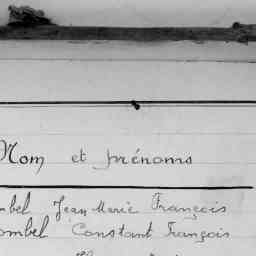 Nom et prénoms
mbel Jean Marie François
ombel Constant François